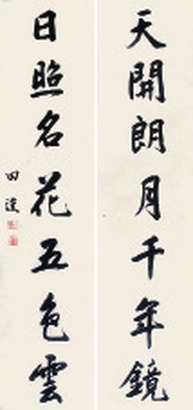 天開朗月千年鏡
日照名花五色雲
田蓬